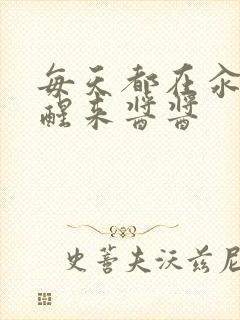 每天都在汆
醒来酱酱
史蒈夫沃兹尼